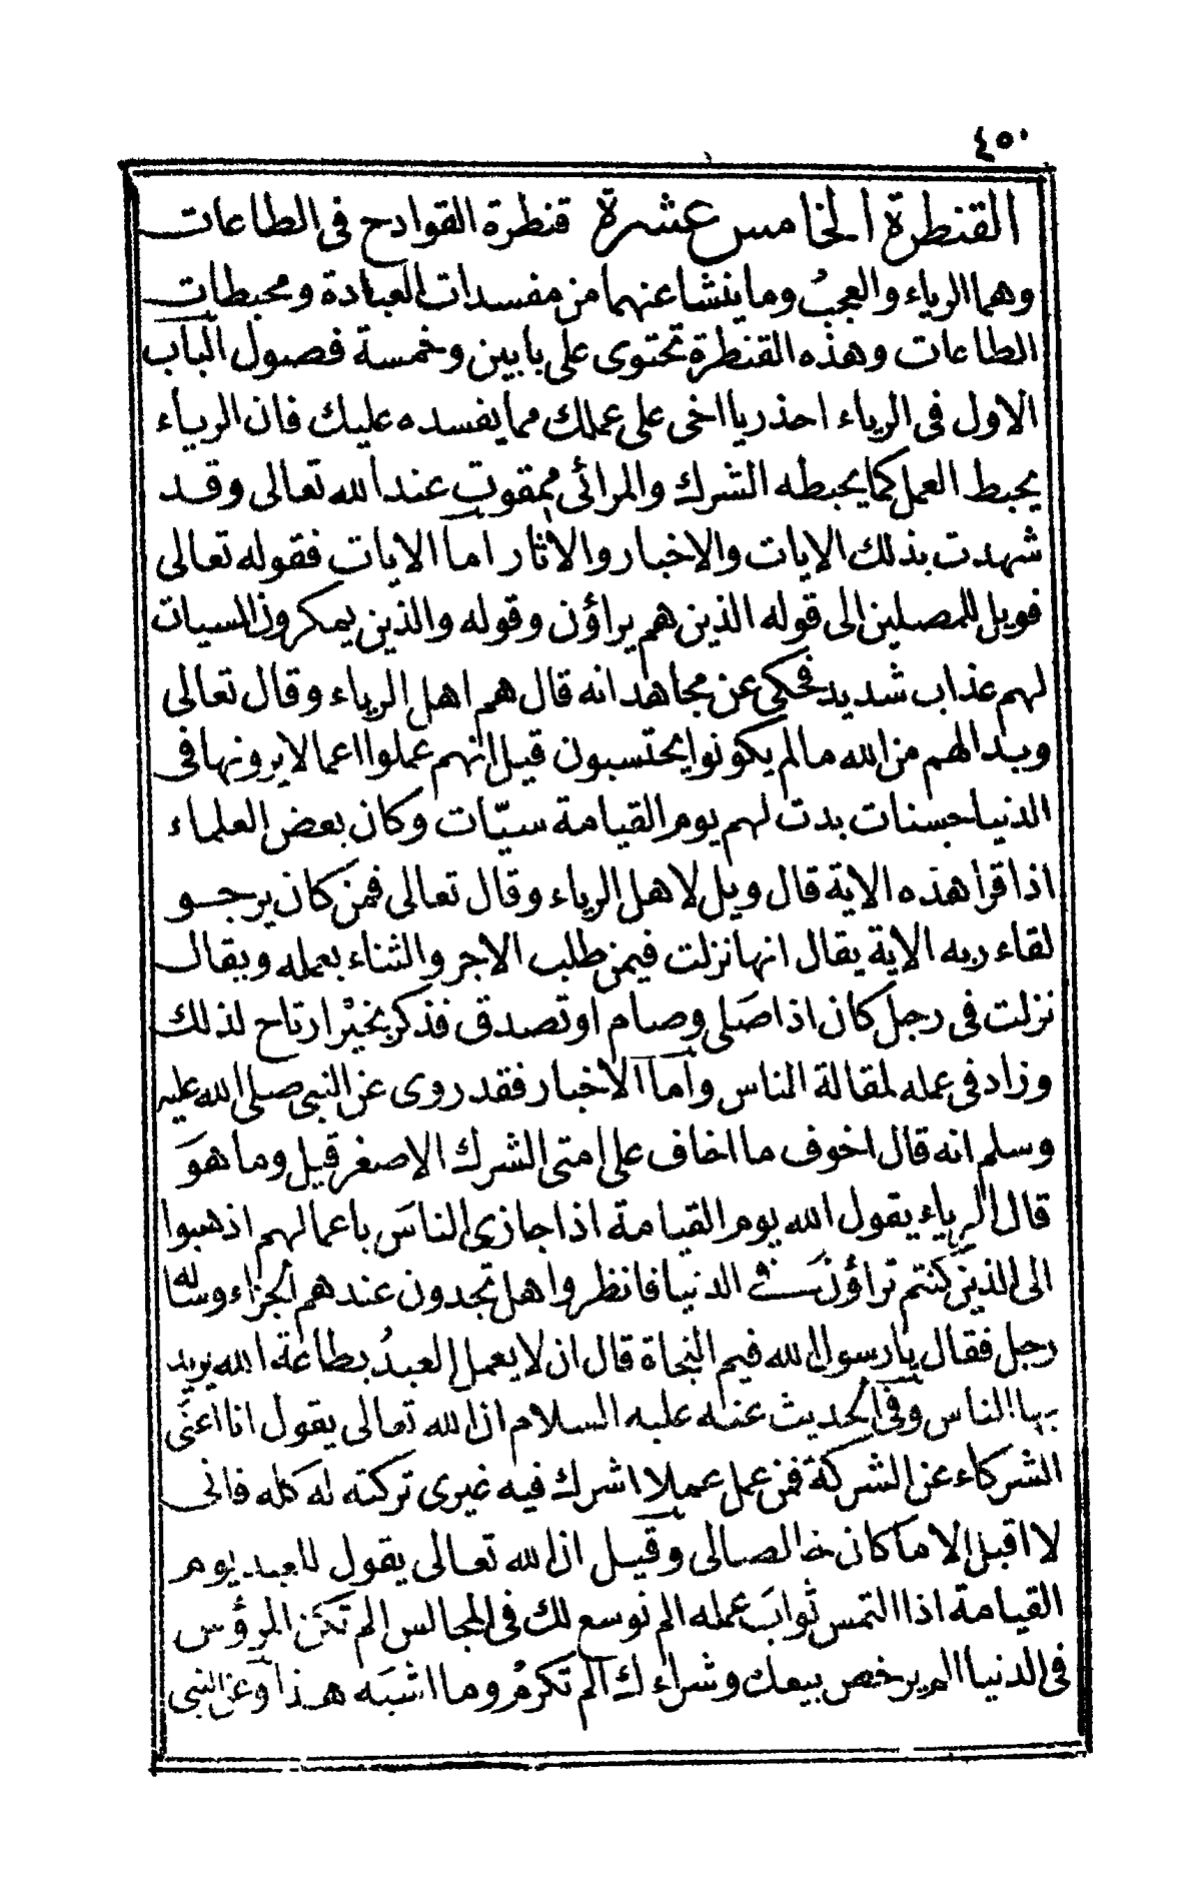 ٤٥٠
القنطرة الخامس عشرة قنطرة القوادح فى الطاعات
وهما الرياء والعجبُ وما ينشا عنهما من مفسدات العبادة ومحبطات
الطاعات وهذه القنطرة تحتوى على بابين وخمسة فصول الباب
الاول فى الرياء احذر يا اخى على عملك مما يفسده عليك فان الرياء
يحبط العمل كما يحبطه الشرك والمرائى ممقوت عند الله تعالى وقد
شهدت بذلك الايات والاخبار والاثار اما الايات فقوله تعالى
فويل للمصلين الى قوله الذين هم يراؤن وقوله والذين يمكرون السيات
لهم عذاب شديد فحكى عن مجاهد انه قال هم اهل الرياء وقال تعالى
وبدالهم من الله مالم يكونوا يحتسبون قيل انهم عملوا اعمالا يرونها فى
الدنيا حسنات بدت لهم يوم القيامة سيّات وكان بعض العلماء
اذا قرا هذه الاية قال ويل لاهل الرياء وقال تعالى فمن كان يرجو
لقاء ربه الاية يقال انها نزلت فيمن طلب الاجر والثناء بعمله ويقال
نزلت فى رجل كان اذا صَلى وصام او تصدق فذكر بخيْر ارتاح لذلك
وزاد فى عمله لمقالة الناس وأما الاخبار فقد روى عن النبى صلى الله عليه
وسلم انه قال اخوف ما اخاف على امتى الشرك الاصغر قيل وما هوَ
قال الرياء يقول الله يوم القيامة اذا جازى الناسَ باعمالهم اذهبوا
الى الذين كنتم تراؤن فى الدنيا فانظروا هل تجدون عندهم الجزاء وساله
رجل فقال يا رسول الله فيم النجاة قال ان لا يعمل العبدُ بطاعة الله يريد
بها الناس وفى الحديث عنه عليه السلام ان الله تعالى يقول انا اغنَى
الشركاء عن الشركة فمن عمل عملا اشرك فيه غيرى تركته له كله فانى
لا اقبل الا ما كان خالصالى وقيل ان الله تعالى يقول للعبد يوم
القيامة اذا التمس ثوابَ عمله الم نوسع لك فى المجالس الم تكن المرؤس
فى الدنيا الم يرخص بيعك وشراءك الم تكرمْ وما اشبَه هذا وعن النبى